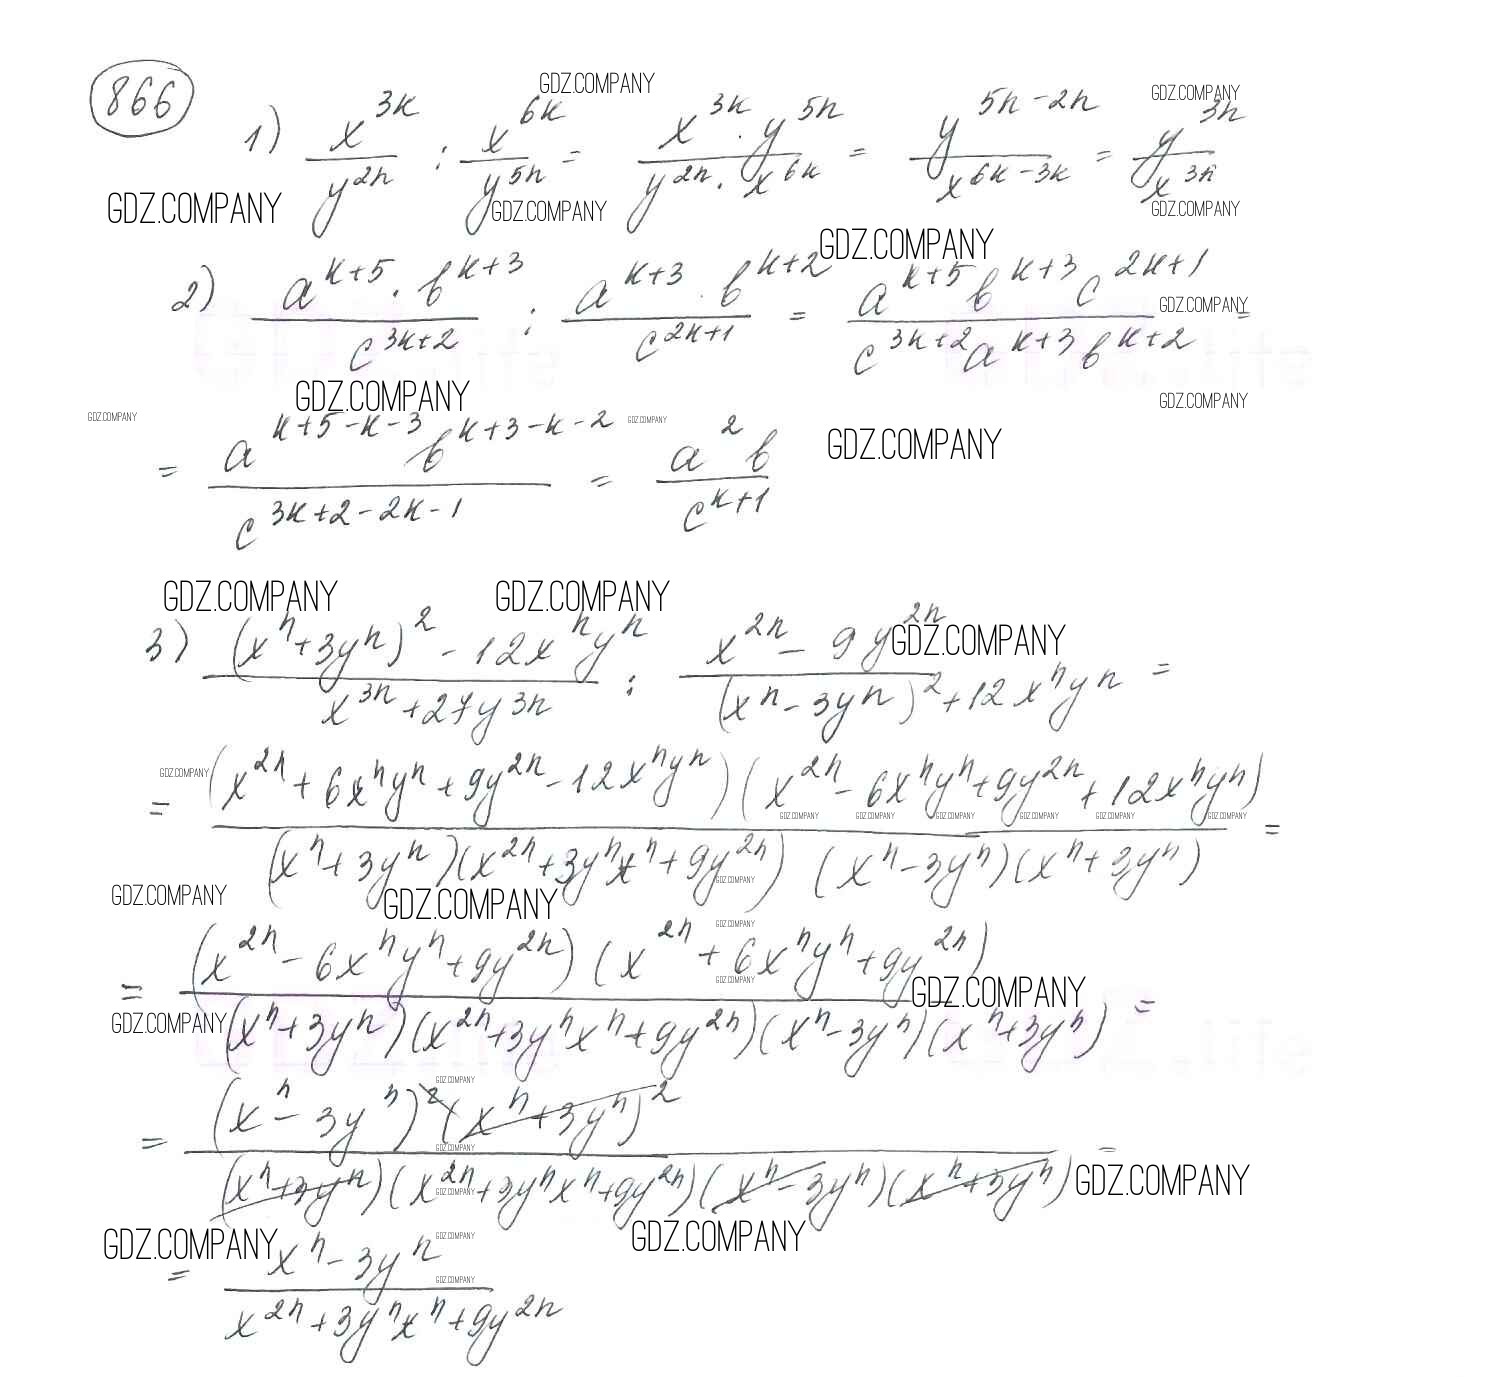 866
GDZ.COMPANY GDZ.COMPANY
1) x^{3k}/y^{2n} : x^{6k}/y^{5n} = (x^{3k} · y^{5n})/(y^{2n} · x^{6k}) = y^{5n-2n}/x^{6k-3k} = y^{3n}/x^{3k}
GDZ.COMPANY GDZ.COMPANY GDZ.COMPANY
GDZ.COMPANY
2) (a^{k+5} · b^{k+3})/c^{3k+2} : (a^{k+3} · b^{k+2})/c^{2k+1} = (a^{k+5} b^{k+3} c^{2k+1})/(c^{3k+2} a^{k+3} b^{k+2}) =
GDZ.COMPANY
GDZ.COMPANY GDZ.COMPANY
GDZ.COMPANY GDZ.COMPANY GDZ.COMPANY
= (a^{k+5-k-3} b^{k+3-k-2})/c^{3k+2-2k-1} = (a^2 b)/c^{k+1}
GDZ.COMPANY GDZ.COMPANY
GDZ.COMPANY
3) ((x^n+3y^n)^2 - 12x^n y^n)/(x^{3n}+27y^{3n}) : (x^{2n} - 9y^{2n})/((x^n-3y^n)^2+12x^n y^n) =
GDZ.COMPANY
= ((x^{2n} + 6x^n y^n + 9y^{2n} - 12x^n y^n)(x^{2n} - 6x^n y^n + 9y^{2n} + 12x^n y^n))/((x^n+3y^n)(x^{2n}+3y^n x^n+9y^{2n})(x^n-3y^n)(x^n+3y^n)) =
GDZ.COMPANY GDZ.COMPANY GDZ.COMPANY GDZ.COMPANY GDZ.COMPANY GDZ.COMPANY
GDZ.COMPANY GDZ.COMPANY GDZ.COMPANY
GDZ.COMPANY
= ((x^{2n} - 6x^n y^n + 9y^{2n})(x^{2n} + 6x^n y^n + 9y^{2n}))/((x^n+3y^n)(x^{2n}+3y^n x^n+9y^{2n})(x^n-3y^n)(x^n+3y^n)) =
GDZ.COMPANY GDZ.COMPANY
GDZ.COMPANY
GDZ.COMPANY
= ((x^n - 3y^n)^2 (x^n+3y^n)^2)/((x^n+3y^n)(x^{2n}+3y^n x^n+9y^{2n})(x^n-3y^n)(x^n+3y^n)) =
GDZ.COMPANY
GDZ.COMPANY GDZ.COMPANY
GDZ.COMPANY GDZ.COMPANY GDZ.COMPANY
= (x^n - 3y^n)/(x^{2n}+3y^n x^n+9y^{2n})
GDZ.COMPANY